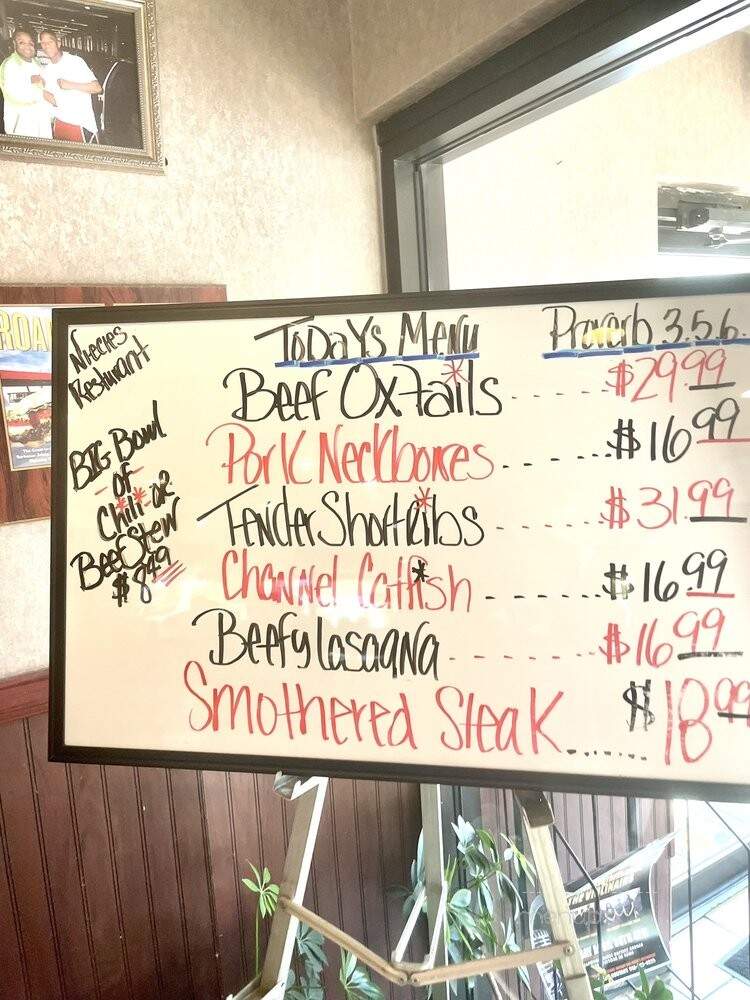 Niecies
Restuirant
BIG Bowl
of
Chili or
Beef Stew
$8.49
TODAYS MENU
Proverb 3.5.6.
Beef Oxtails ...... $29.99
Pork Neckbones ...... $16.99
Tender Short Ribs ...... $31.99
Channel Catfish ...... $16.99
Beefy Lasagna ...... $16.99
Smothered Steak ...... $18.99
ROA